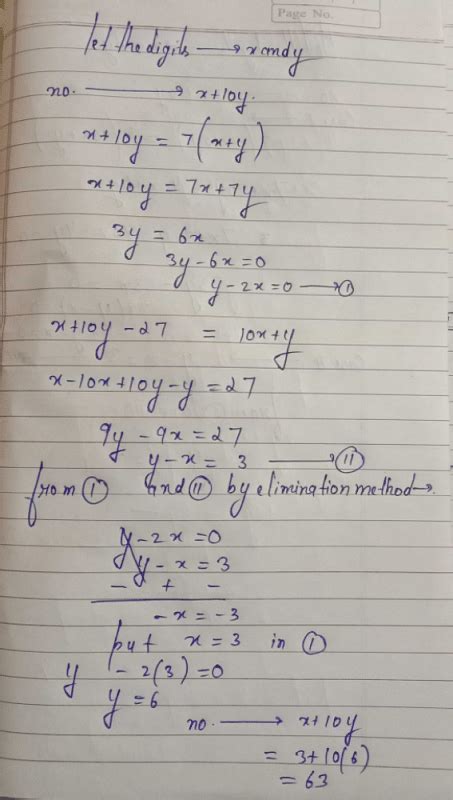 Page No.
let the digits ⟶ x and y
no. ⟶ x+10y.
x+10y = 7(x+y)
x+10y = 7x+7y
3y = 6x
3y-6x=0
y-2x=0 ⟶ ①
x+10y-27 = 10x+y
x-10x+10y-y=27
9y-9x=27
y-x= 3 ⟶ ⑪
from ① and ⑪ by elimination method→.
y-2x=0
y-x=3
- + -
-x=-3
put x=3 in ①
y -2(3)=0
y=6
no. ⟶ x+10y
= 3+10(6)
= 63